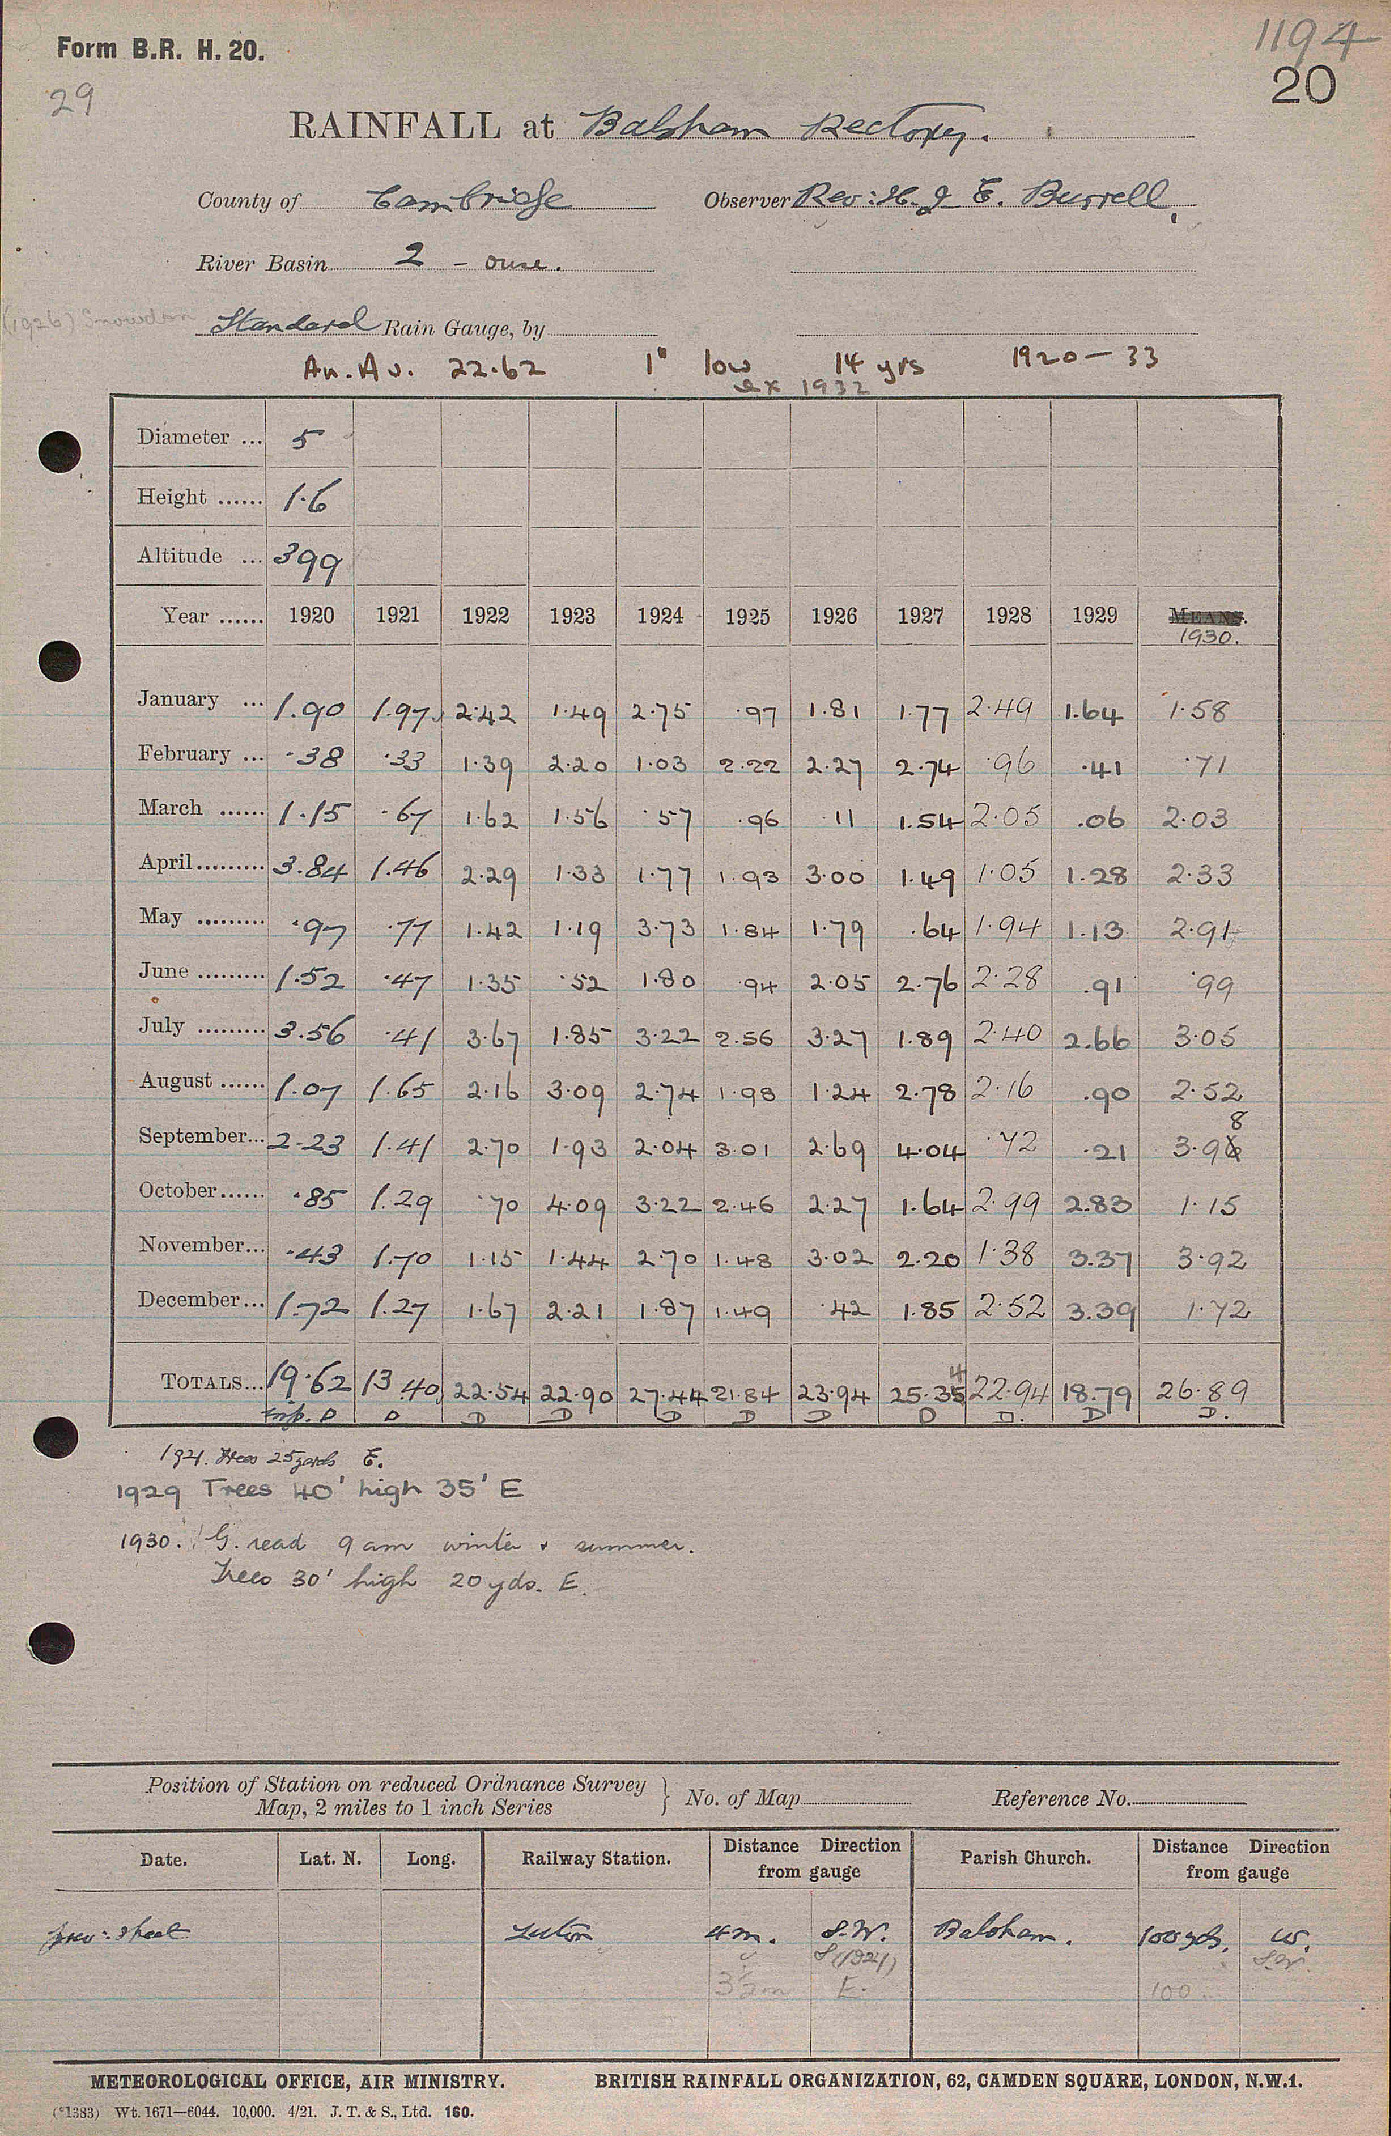 1194
Form B.R. H. 20.
20
29
RAINFALL at Balsham Rectory.
County of Cambridge Observer Rev: H. J. E. Burrell,
River Basin 2 - Ouse.
(1926) Snowdon Standard Rain Gauge, by
An. Av. 22.62 1" low 14 yrs 1920-33
ex 1932
Diameter ... 5
Height ...... 1.6
Altitude ... 399
Year ...... 1920 1921 1922 1923 1924 1925 1926 1927 1928 1929 MEANS.
1930.
January ... 1.90 1.97 2.42 1.49 2.75 .97 1.81 1.77 2.49 1.64 1.58
February ... .38 .33 1.39 2.20 1.03 2.22 2.27 2.74 .96 .41 .71
March ...... 1.15 .67 1.62 1.56 .57 .96 .11 1.54 2.05 .06 2.03
April ......... 3.84 1.46 2.29 1.33 1.77 1.93 3.00 1.49 1.05 1.28 2.33
May ......... .97 .77 1.42 1.19 3.73 1.84 1.79 .64 1.94 1.13 2.91
June ......... 1.52 .47 1.35 .52 1.80 .94 2.05 2.76 2.28 .91 .99
July ......... 3.56 .41 3.67 1.85 3.22 2.56 3.27 1.89 2.40 2.66 3.05
August ...... 1.07 1.65 2.16 3.09 2.74 1.98 1.24 2.78 2.16 .90 2.52
September... 2.23 1.41 2.70 1.93 2.04 3.01 2.69 4.04 .72 .21 3.98
October...... .85 1.29 .70 4.09 3.22 2.46 2.27 1.64 2.99 2.83 1.15
November... .43 1.70 1.15 1.44 2.70 1.48 3.02 2.20 1.38 3.37 3.92
December... 1.72 1.27 1.67 2.21 1.87 1.49 .42 1.85 2.52 3.39 1.72
TOTALS... 19.62 13.40 22.54 22.90 27.44 21.84 23.94 25.34 22.94 18.79 26.89
D D D D D D D D D. D D.
1921. Trees 25 yards E.
1929 Trees 40' high 35' E
1930. G. read 9 am winter & summer.
Trees 30' high 20 yds. E.
Position of Station on reduced Ordnance Survey
Map, 2 miles to 1 inch Series } No. of Map Reference No.
Date. Lat. N. Long. Railway Station. Distance Direction from gauge Parish Church. Distance Direction from gauge
prev: sheet 4 m. S.W. Balsham. 100 yds. W.
S (1921) S.W.
3½ m E. 100
METEOROLOGICAL OFFICE, AIR MINISTRY. BRITISH RAINFALL ORGANIZATION, 62, CAMDEN SQUARE, LONDON, N.W.1.
(*1383) Wt. 1671—6044. 10,000. 4/21. J. T. & S., Ltd. 160.